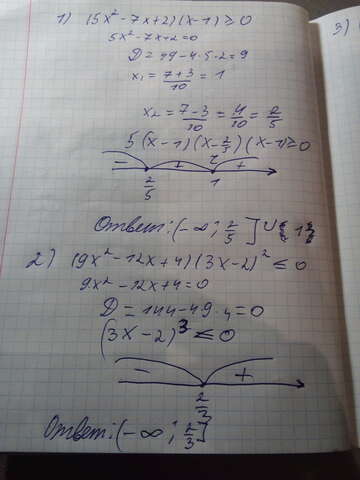 1) (5x² - 7x + 2)(x - 1) ≥ 0
3)
5x² - 7x + 2 = 0
D = 49 - 4·5·2 = 9
x₁ = 7+3/10 = 1
x₂ = 7-3/10 = 4/10 = 2/5
5(x - 1)(x - 2/5)(x - 1) ≥ 0
- + +
2/5 1
Ответ: (-∞; 2/5] ∪ {1}
2) (9x² - 12x + 4)(3x - 2)² ≤ 0
9x² - 12x + 4 = 0
D = 144 - 49·4 = 0
(3x - 2)³ ≤ 0
- +
2/3
Ответ: (-∞; 2/3]